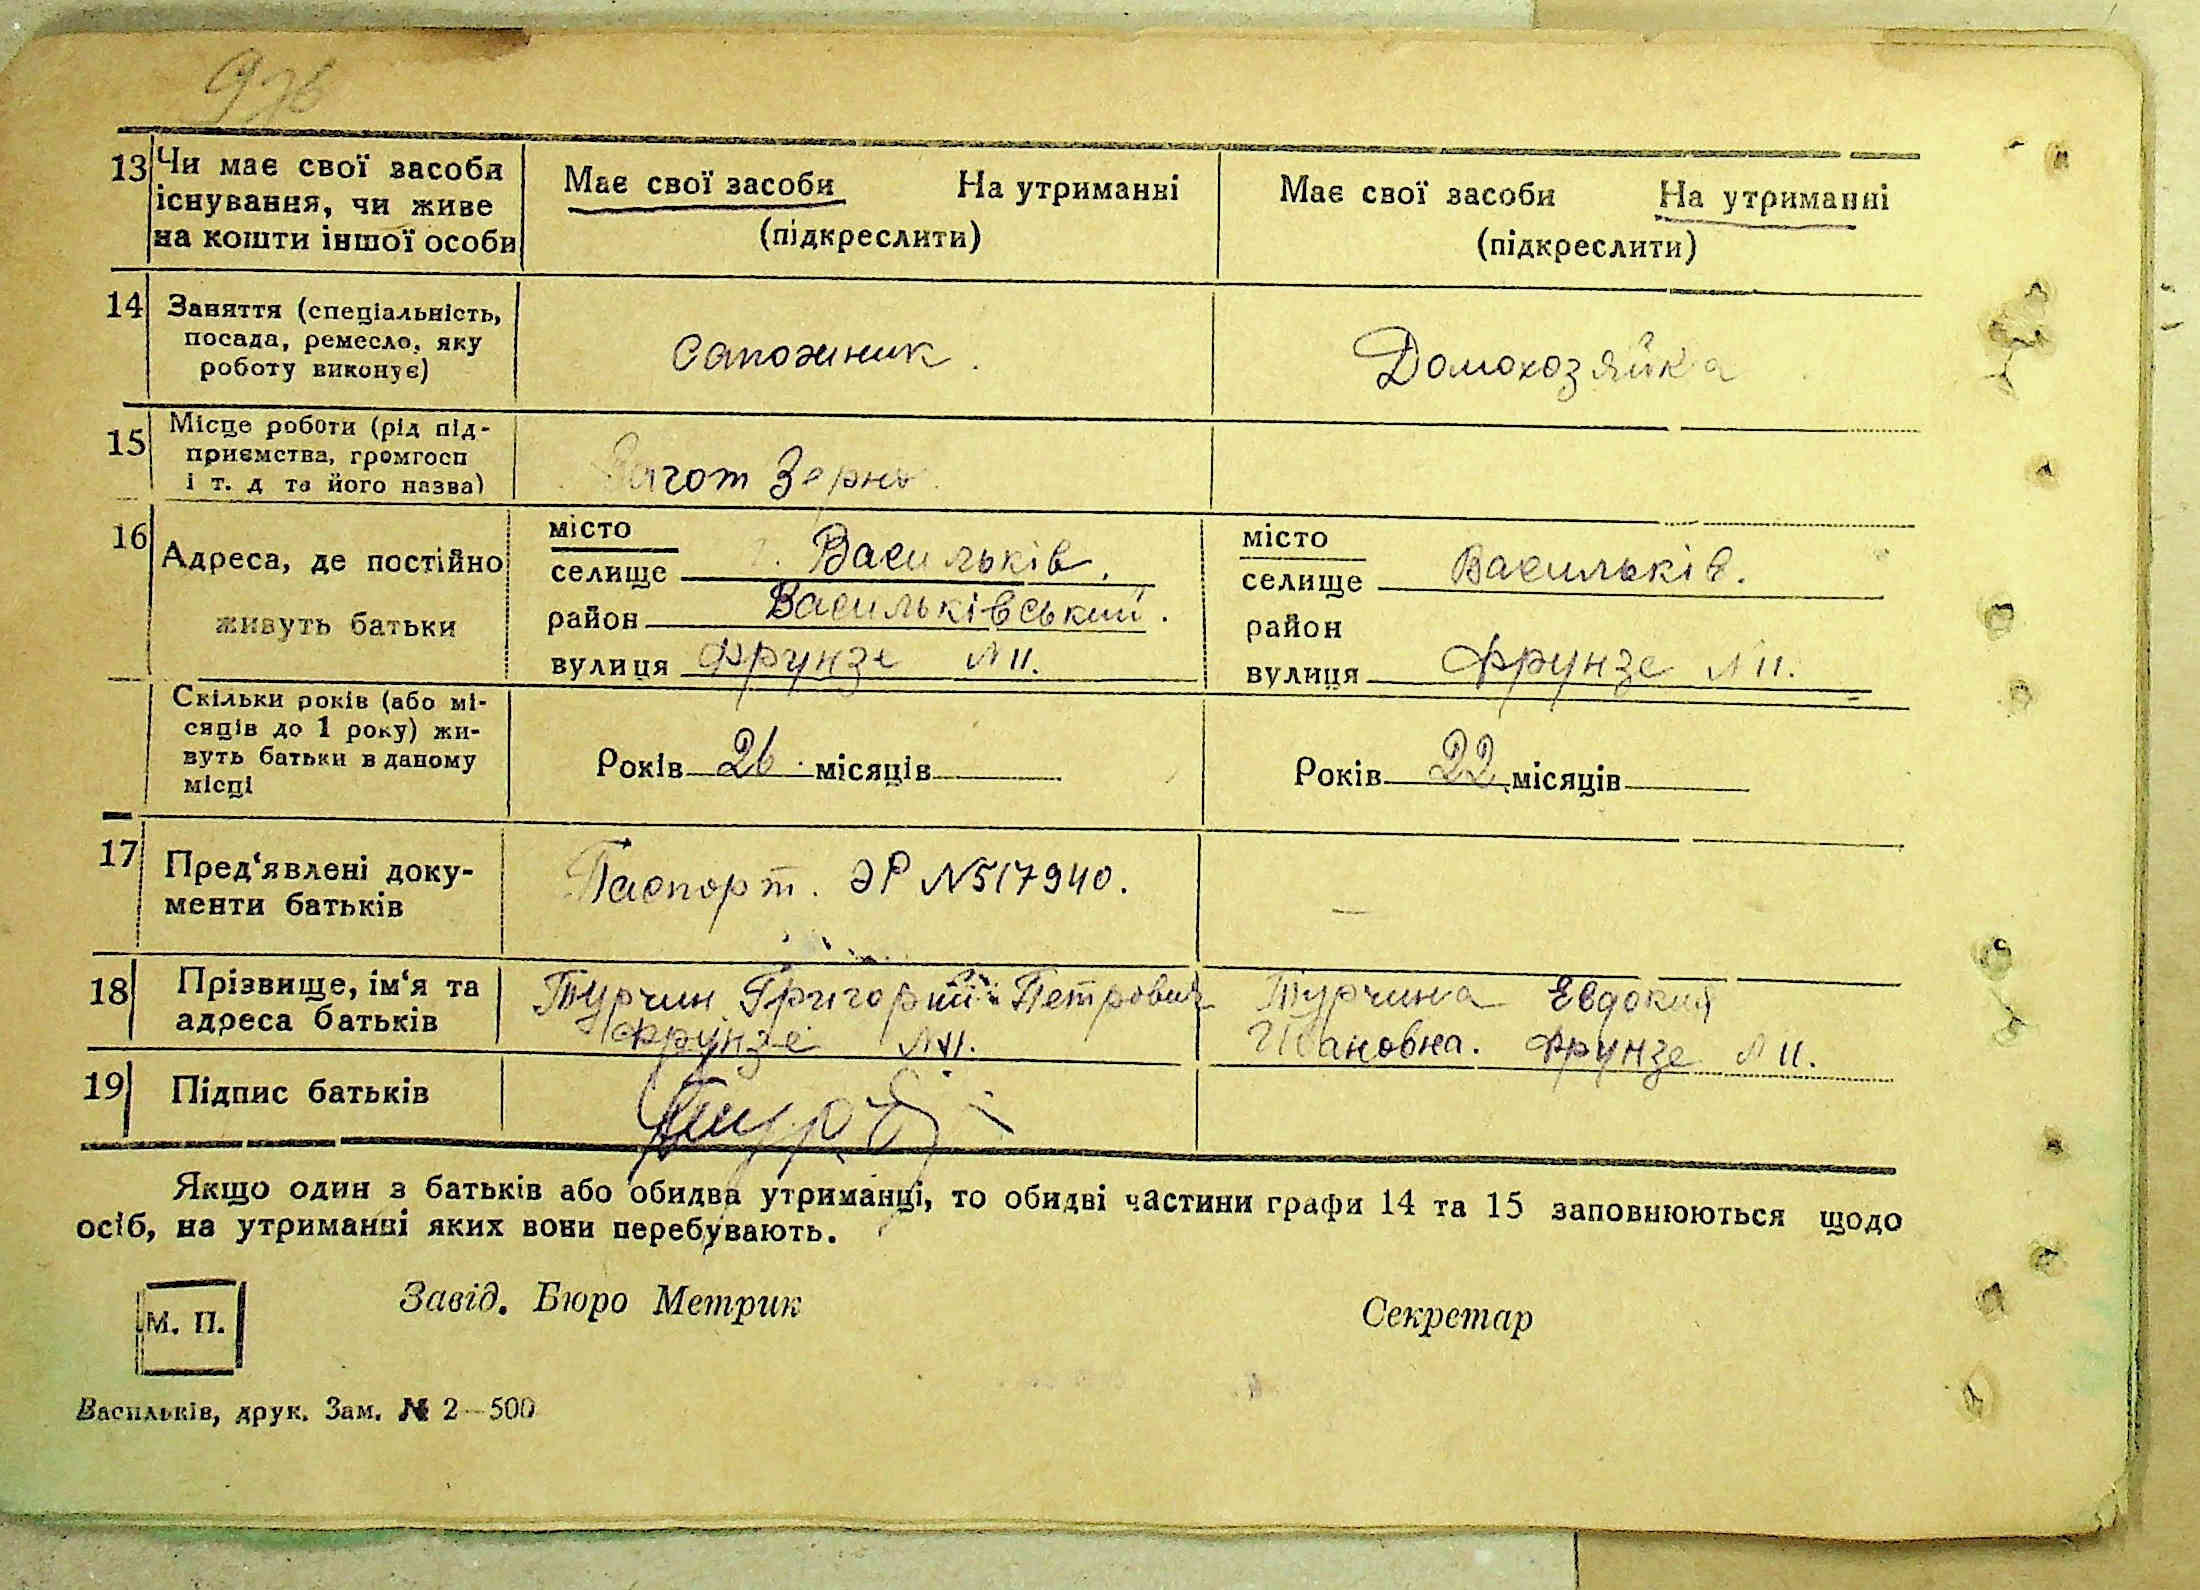 13 Чи має свої засоби існування, чи живе на кошти іншої особи
Має свої засоби На утриманні
(підкреслити)
Має свої засоби На утриманні
(підкреслити)
14 Заняття (спеціальність, посада, ремесло, яку роботу виконує)
Сапожник.
Домохозяйка
15 Місце роботи (рід підприємства, громгосп і т. д та його назва)
Загот Зерно
16 Адреса, де постійно живуть батьки
місто
селище г. Васильків.
район Васильківський.
вулиця Фрунзе №11.
місто
селище Васильків.
район
вулиця Фрунзе №11.
Скільки років (або мі-
сяців до 1 року) жи-
вуть батьки в даному
місці
Років 26. місяців
Років 22 місяців
17 Пред‘явлені доку-
менти батьків
Паспорт. ЭР №517940.
—
18 Прізвище, ім‘я та
адреса батьків
Турчин Григорий Петрович
Фрунзе №11.
Турчина Евдокия
Ивановна. Фрунзе №11.
19 Підпис батьків
Якщо один з батьків або обидва утриманці, то обидві частини графи 14 та 15 заповнюються щодо
осіб, на утриманні яких вони перебувають.
М. П.
Завід. Бюро Метрик
Секретар
Васильків, друк. Зам. № 2—500